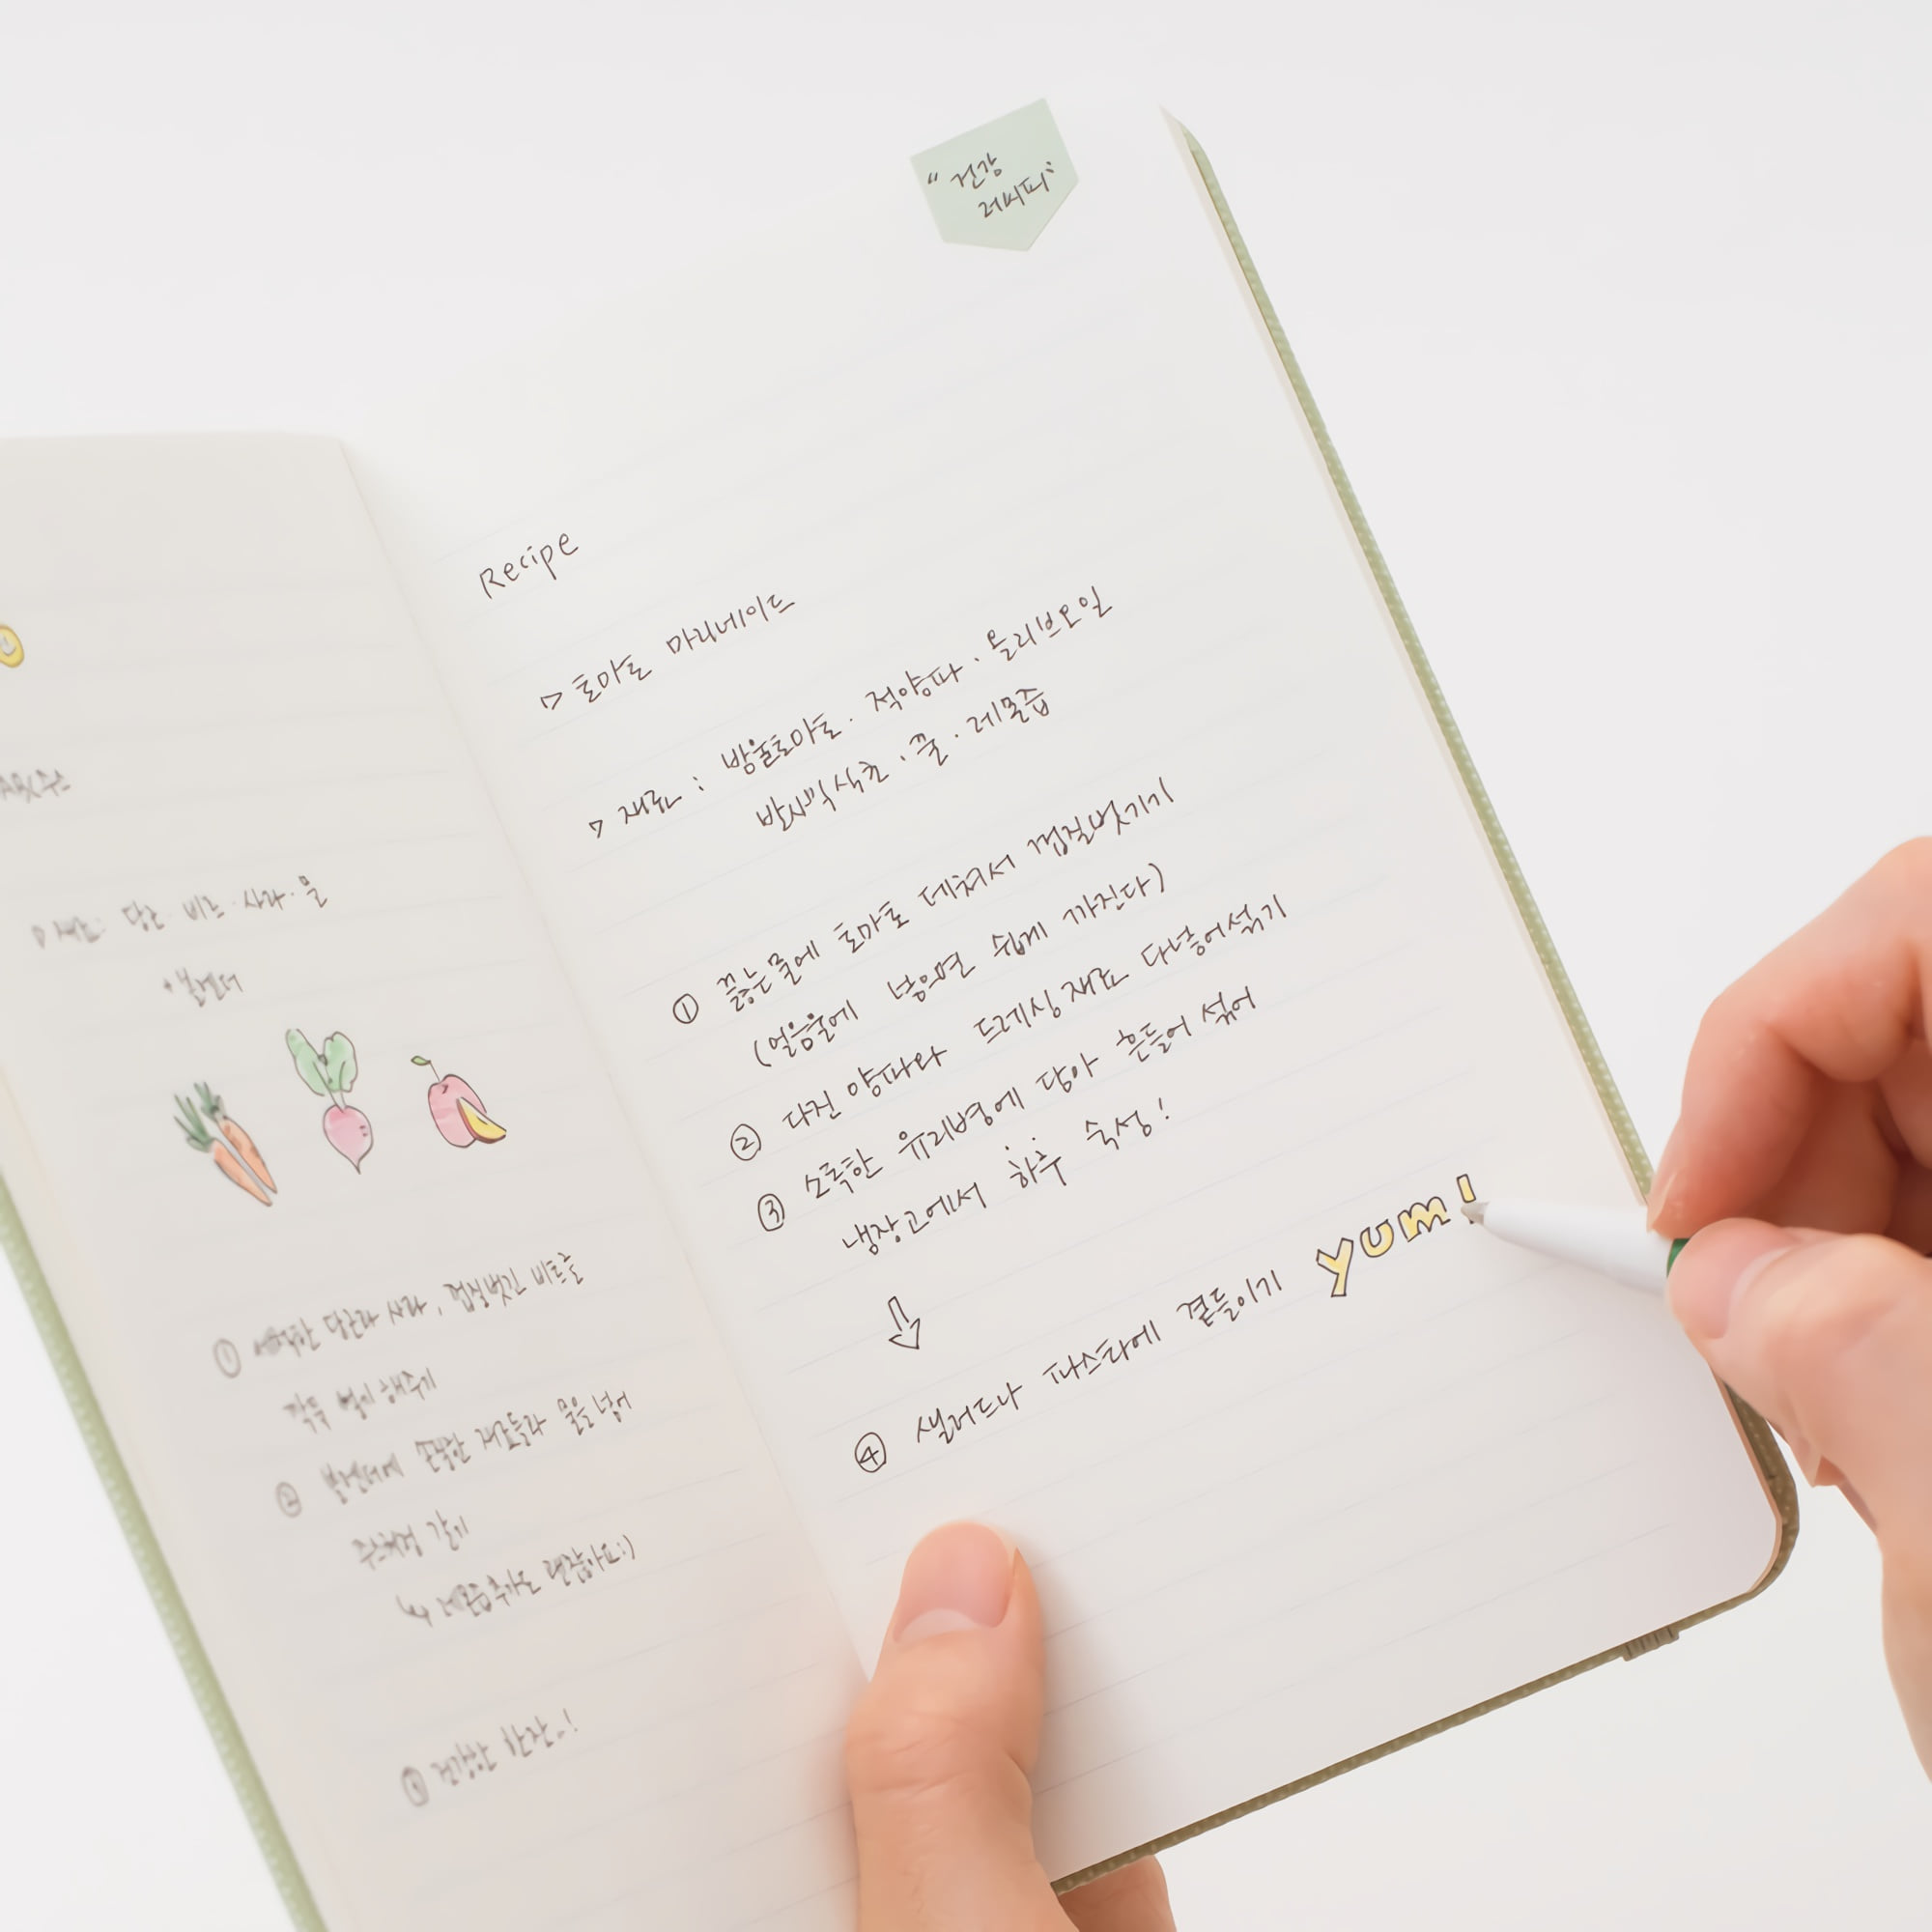 "건강
레씨피"
Recipe
▷ 토마토 마리네이드
▷ 재료 : 방울토마토 · 적양파 · 올리브오일
발사믹식초 · 꿀 · 레몬즙
① 끓는물에 토마토 데쳐서 껍질벗기기
(얼음물에 넣으면 쉽게 까진다)
② 다진 양파와 드레싱재료 다넣어섞기
③ 소독한 유리병에 담아 흔들어 섞어
냉장고에서 하루 숙성!
⇩
④ 샐러드나 파스타에 곁들이기 yum!
재료: 당근 · 비트 · 사과 · 물
+블렌더
① 세척한 당근과 사과, 껍질벗긴 비트를
깍둑 썰기 해주기
② 블렌더에 손질한 재료들과 물을 넣어
주스처럼 갈기
↳ 레몬즙추가도 괜찮아요:)
③ 건강한 한잔~!